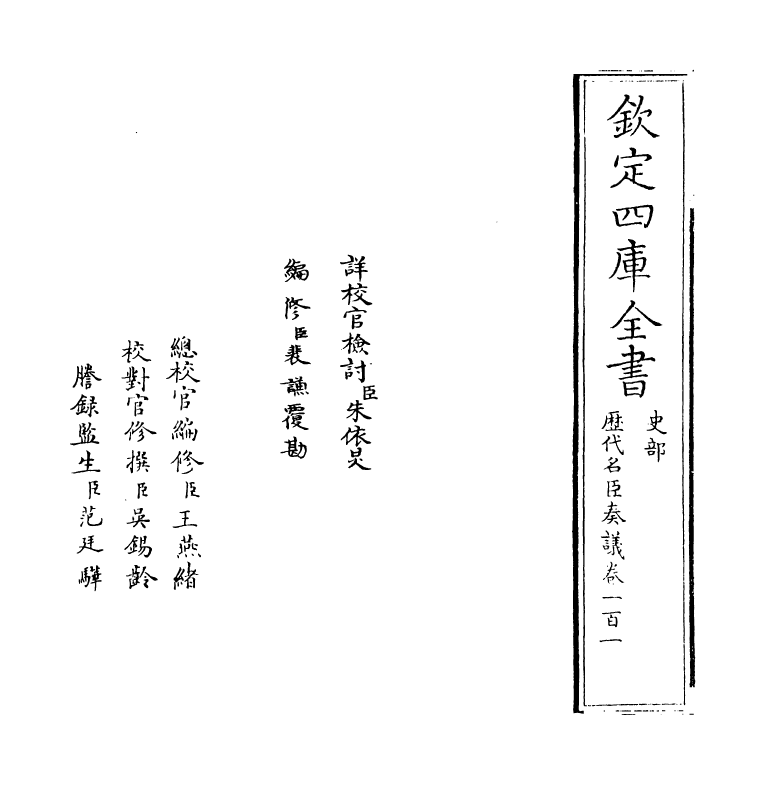 欽定四庫全書
史部
歷代名臣奏議卷一百一
詳校官檢討臣朱依炅
編修臣裴謙覆勘
總校官編修臣王燕緒
校對官修撰臣吳錫齡
謄錄監生臣范廷驊